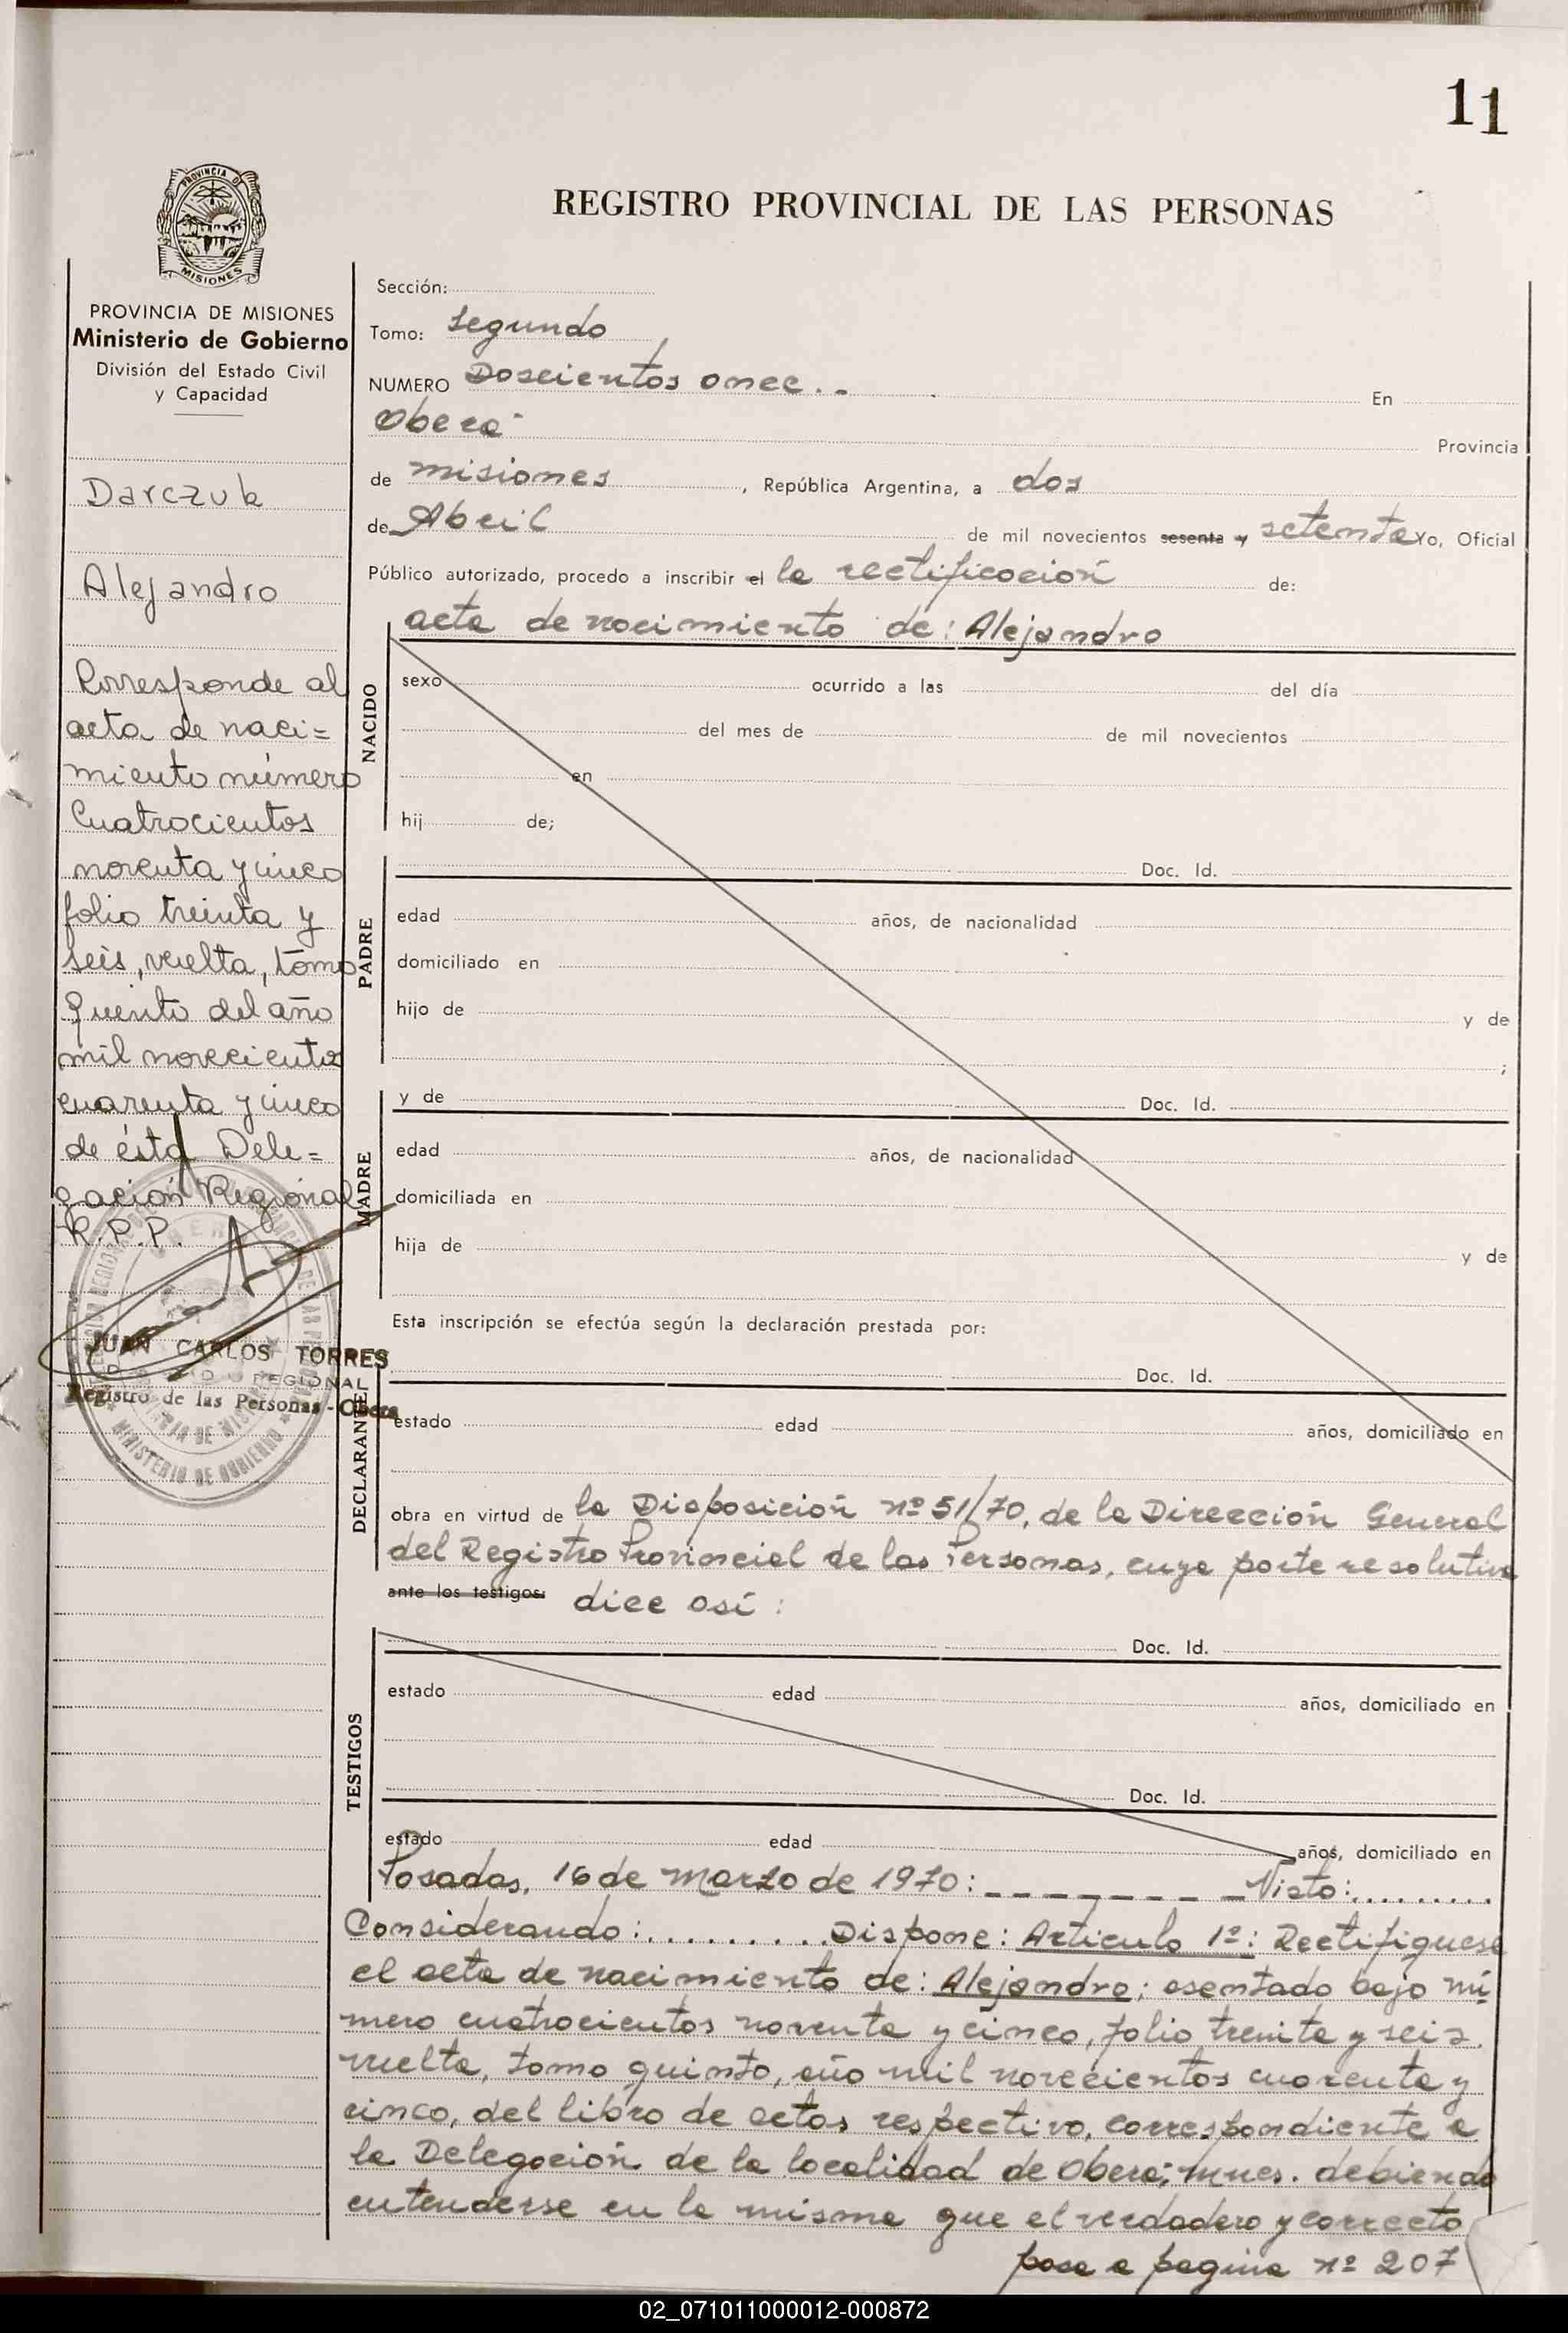 11
PROVINCIA D
MISIONES
REGISTRO PROVINCIAL DE LAS PERSONAS
PROVINCIA DE MISIONES
Ministerio de Gobierno
División del Estado Civil
y Capacidad
Darczuk
Alejandro
Corresponde al
acta de naci=
miento número
Cuatrocientos
noventa y cinco
folio treinta y
seis, vuelta, tomo
quinto del año
mil novecientos
cuarenta y cinco
de ésta Dele=
gación Regional
R.P.P.
JUAN CARLOS TORRES
REGIONAL
Registro de las Personas - Obera
MINISTERIO DE GOBIERNO
Sección:
Tomo: Segundo
NUMERO Doscientos once.. En
Oberá Provincia
de misiones, República Argentina, a dos
de Abril de mil novecientos sesenta y setenta Yo, Oficial
Público autorizado, procedo a inscribir el la rectificación de:
acta de nacimiento de: Alejandro
NACIDO
sexo ocurrido a las del día
del mes de de mil novecientos
en
hij de;
Doc. Id.
PADRE
edad años, de nacionalidad
domiciliado en
hijo de y de
;
y de Doc. Id.
MADRE
edad años, de nacionalidad
domiciliada en
hija de y de
Esta inscripción se efectúa según la declaración prestada por:
Doc. Id.
DECLARANTE
estado edad años, domiciliado en
obra en virtud de la Disposición nº 51/70, de la Dirección General
del Registro Provincial de las Personas, cuya parte resolutiva
ante los testigos: dice así:
Doc. Id.
TESTIGOS
estado edad años, domiciliado en
Doc. Id.
estado edad años, domiciliado en
Posadas, 16 de Marzo de 1970: _ _ _ _ _ _ _ Visto:.........
Considerando:.........Dispone: Articulo 1º: Rectifiquese
el acta de nacimiento de: Alejandro; asentado bajo nú
mero cuatrocientos noventa y cinco, folio treinta y seis,
vuelta, tomo quinto, año mil novecientos cuarenta y
cinco, del libro de actas respectivo, correspondiente a
la Delegación de la localidad de Oberá; Mnes. debiendo
entenderse en la misma que el verdadero y correcto
pasa a pagina nº 207
02_071011000012-000872